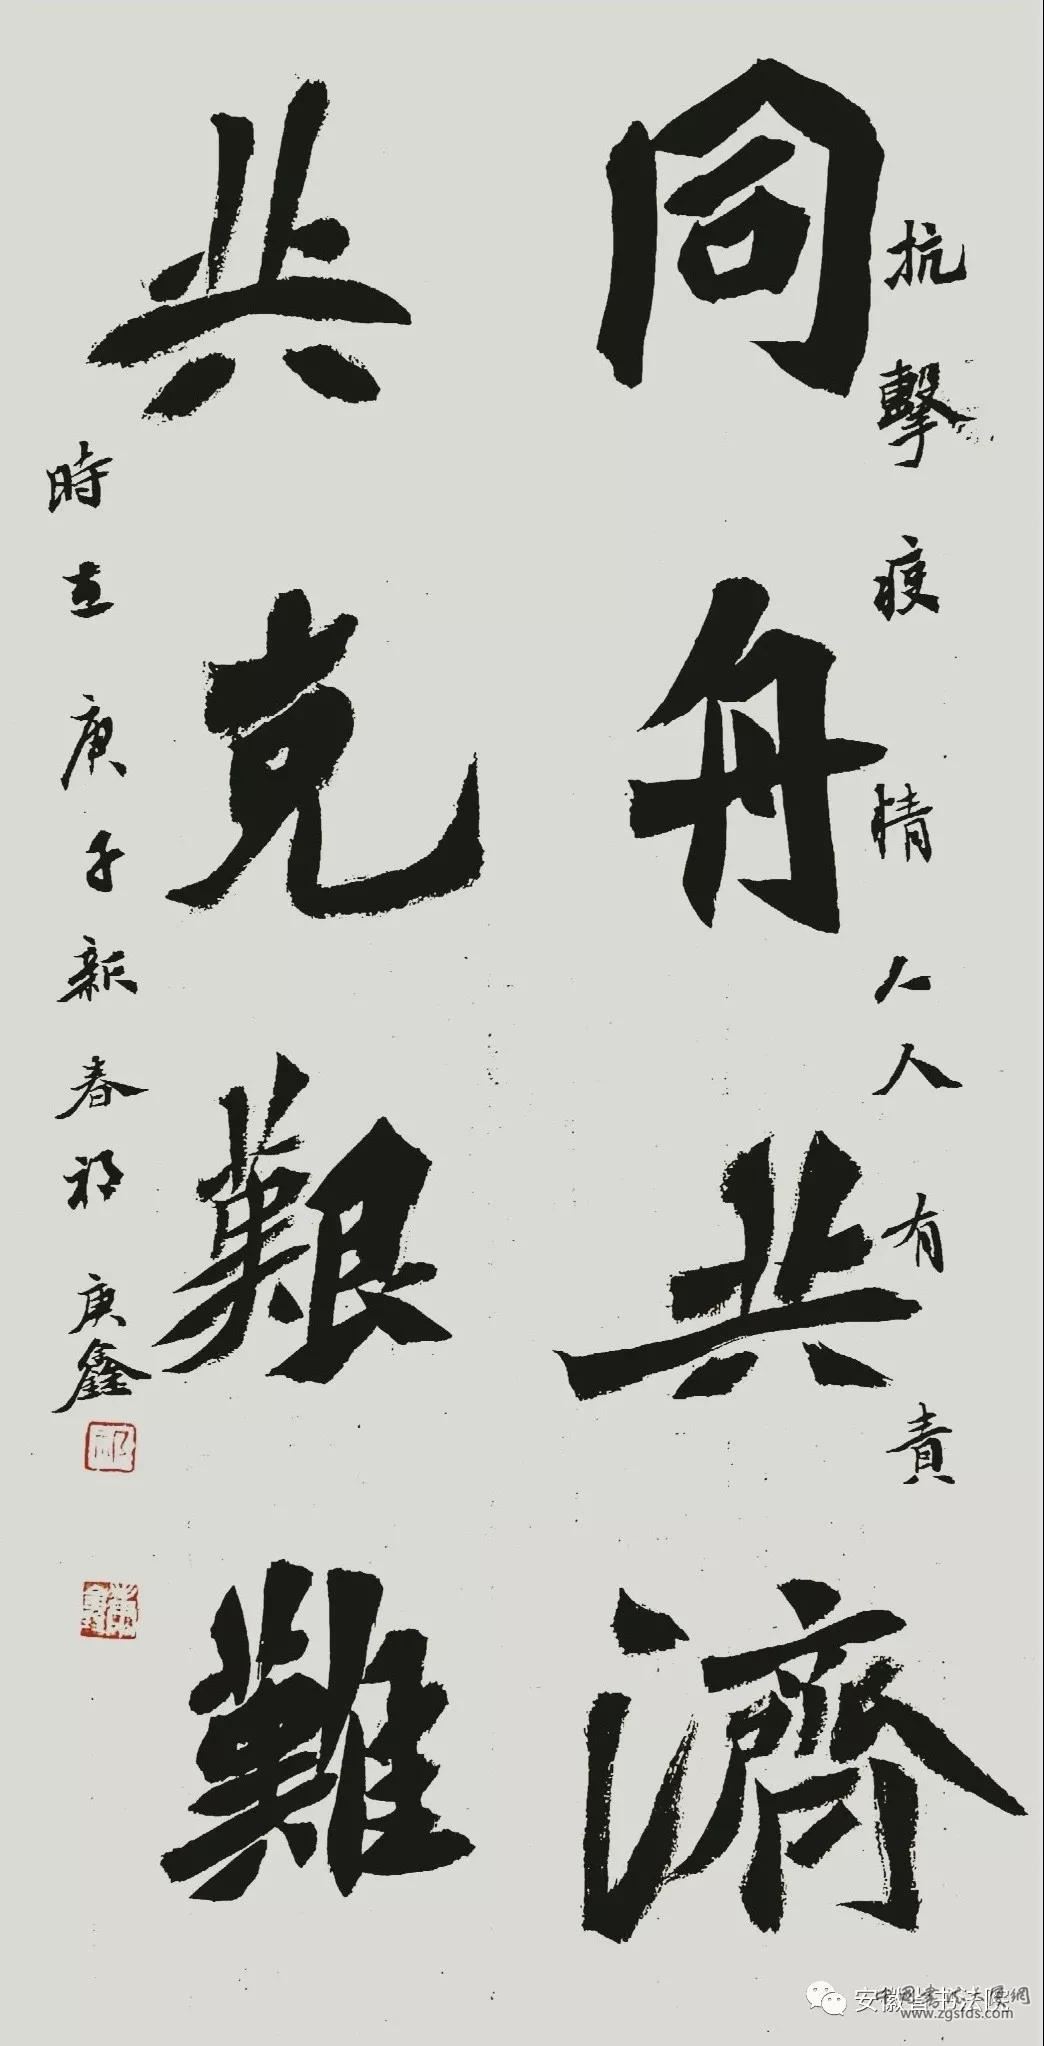 抗擊疫情人人有責
同舟共濟
共克艱難
時在庚子新春祁庚鑫
安徽省书法院
www.zgsfds.com